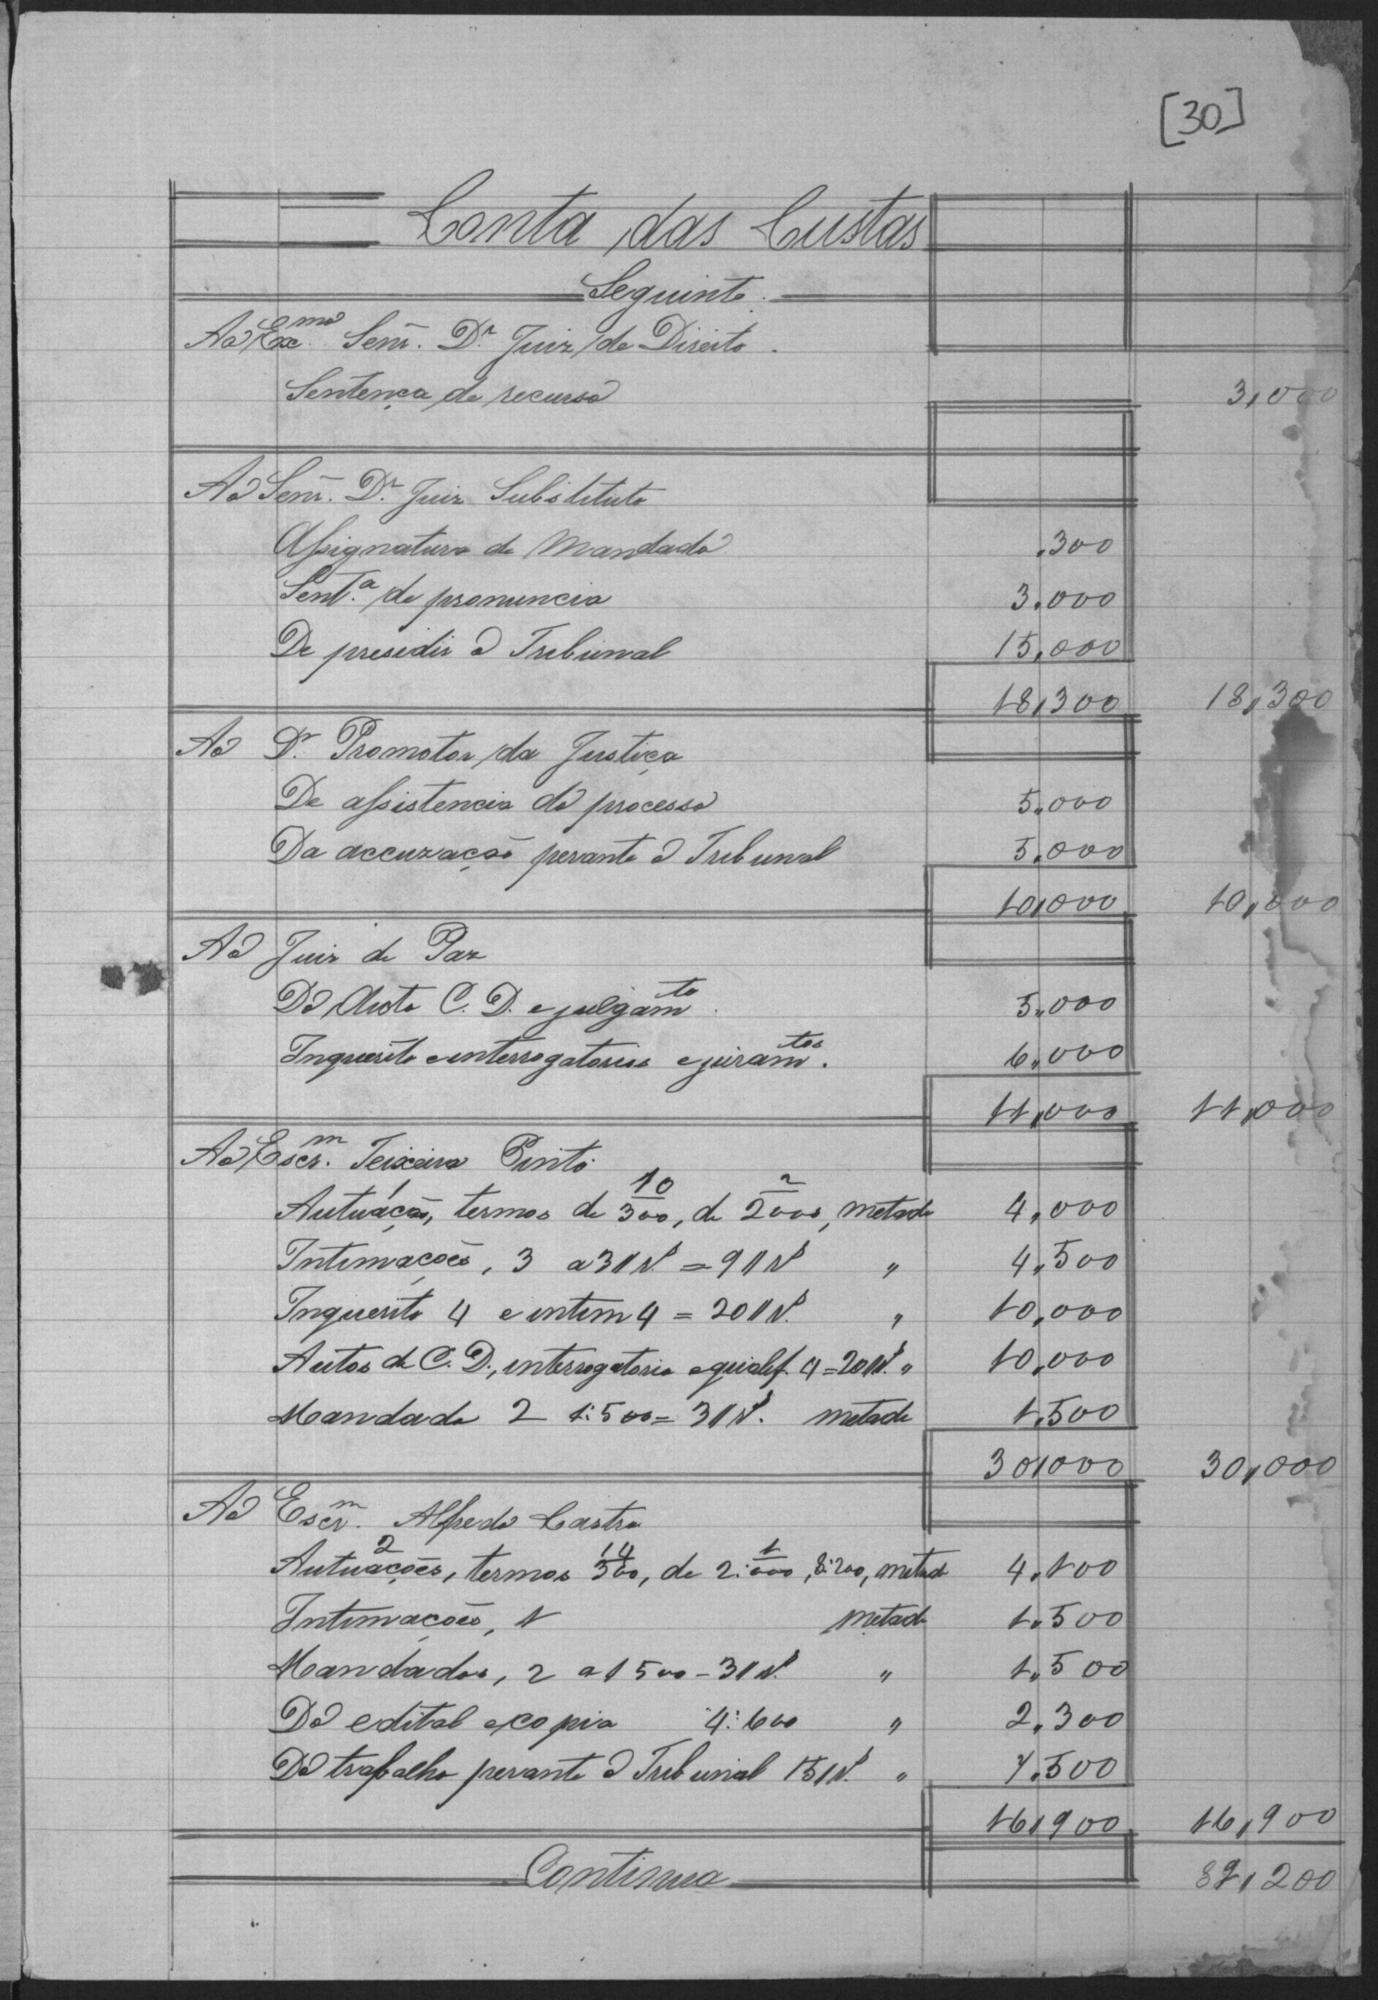 [30]
Conta das Custas
Seguinte.
Ao Exc.mo Senr. Dr. Juiz de Direito.
Sentença de recurso 3,000
Ao Senr. Dr. Juiz Substituto
Assignatura de Mandado .300
Sent.a de pronuncia 3.000
De presidir o Tribunal 15,000
18,300 18,300
Ao Dr. Promotor da Justiça
De assistencia do processo 5.000
Da accuzação perante o Tribunal 5.000
10,000 10,000
Ao Juiz de Paz
Do Auto C. D. e julgam.to 5.000
Inquerito e interrogatorios e juram.tos 6,000
11,000 11,000
Ao Escr.m Teixeira Pinto
Autuação, 1 termos de 10 300, de 2 2000, metade 4,000
Intimações, 3 a 3$ = 9$ " 4,500
Inquerito 4 e intim 4 = 20$ " 10,000
Autos de C. D., interrogatorio e qualif. 4 = 20$ " 10,000
Mandado 2 1:500 = 3$ metade 1,500
30,000 30,000
Ao Escr.m Alfredo Castro
Autuações, 2 termos 14 300, de 2:000 1, 8:200, metade 4.100
Intimações, 1 metade 1.500
Mandados, 2 a 1500 - 3$ " 1.500
Do edital e copia 4:600 " 2.300
Do trabalho perante o Tribunal 15$ " 7.500
16,900 16,900
Continua 89,200